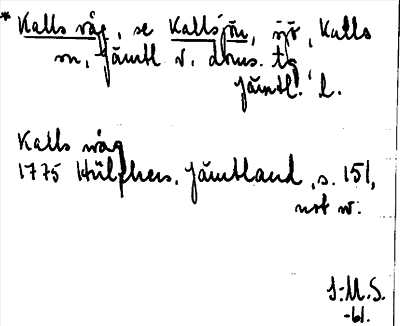 * Kalls våg, se Kallsjön, sjö, Kalls
sn, Jämtl. v. doms. tg
Jämtl. l.
Kalls wåg
1775 Hülphers, Jämtland, s. 151,
not w.
I:M.S.
-61.